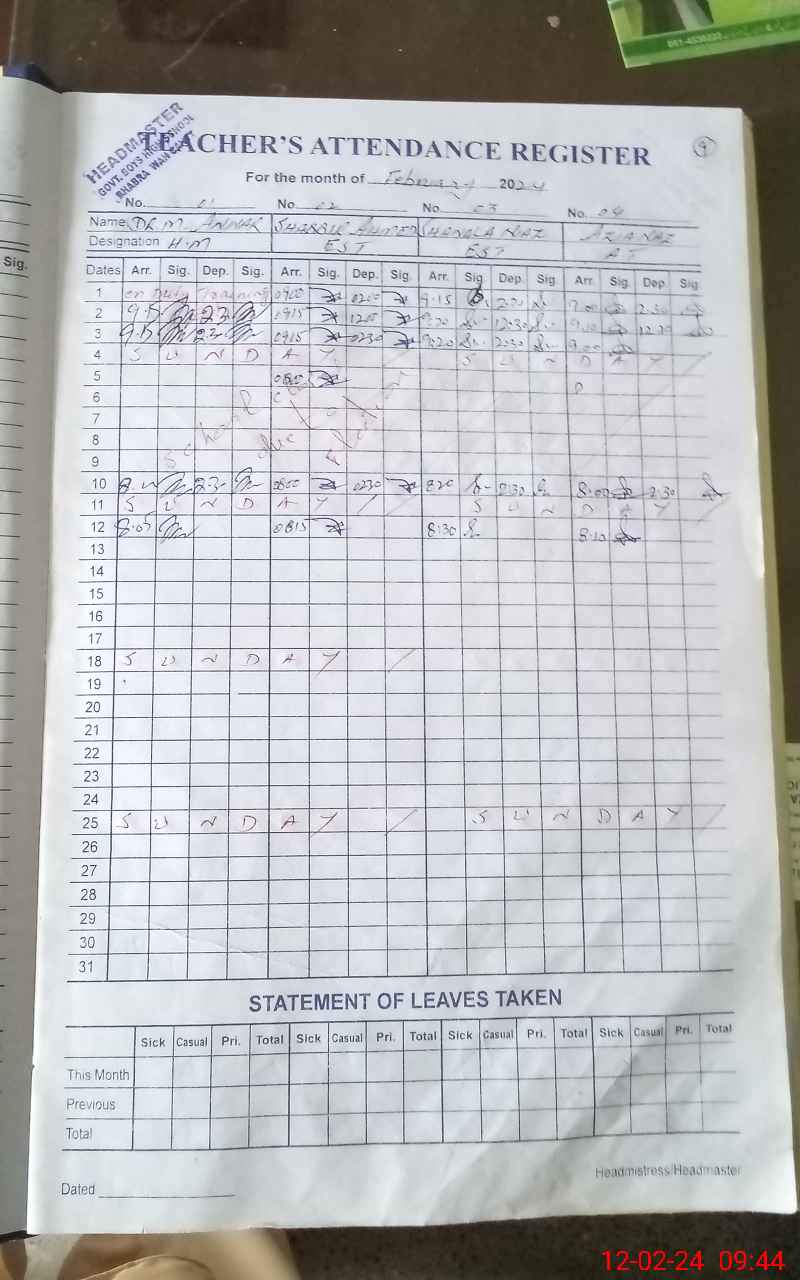 051-4536222
HEADMASTER
GOVT. BOYS HIGH SCHOOL
BHABRA WAH
TEACHER'S ATTENDANCE REGISTER
9
For the month of February 2024
No. 01 No. 02 No. 03 No. 04
Name DR. M. ANWAR SHABBIR AHMED SHAHELA NAZ
Designation H.M EST EST
Sig.
Dates Arr. Sig. Dep. Sig. Arr. Sig. Dep. Sig. Arr. Sig. Dep. Sig. Arr. Sig. Dep. Sig.
1 on Duty Training 0900 0200 9.15 2.30
2 9.15 2.3 0915 1200 9.20 12.30
3 9.15 2.3 0915 0230 9.20 2.30 9.00
4 S U N D A Y S U N D A Y
5 0815
6
7
8
9
School due to
10 2.3 0800 0230 820 2.30 8.00 2.30
11 S U N D A Y S U N D A Y
12 8.05 0815 8.30 8.10
13
14
15
16
17
18 S U N D A Y
19
20
21
22
23
24
25 S U N D A Y S U N D A Y
26
27
28
29
30
31
STATEMENT OF LEAVES TAKEN
Sick Casual Pri. Total Sick Casual Pri. Total Sick Casual Pri. Total Sick Casual Pri. Total
This Month
Previous
Total
Headmistress/Headmaster
Dated
12-02-24 09:44